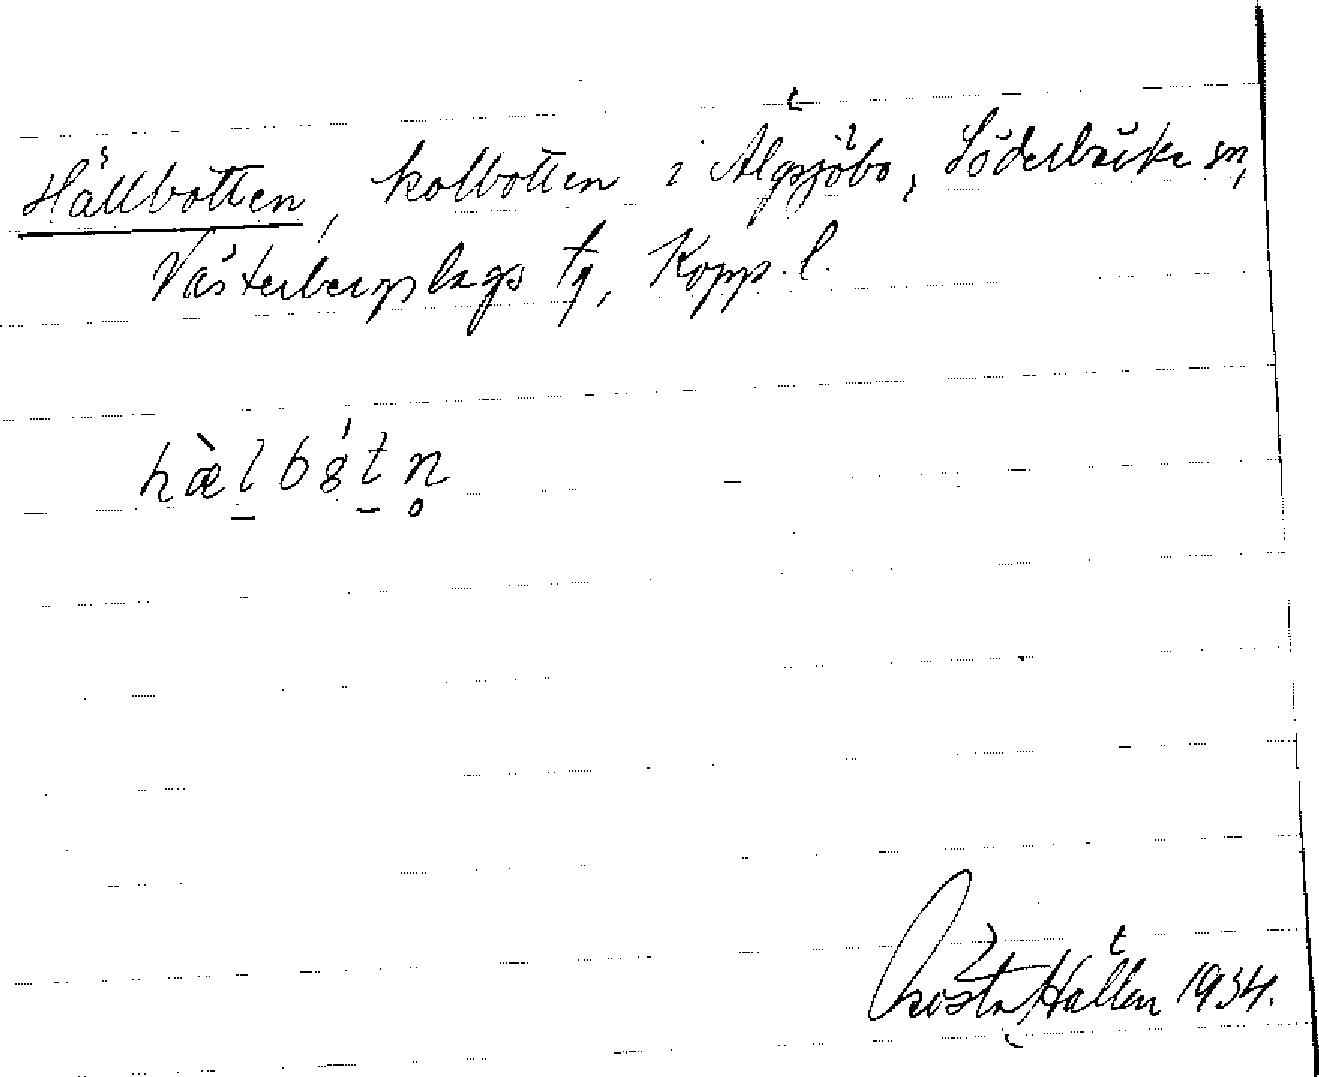 Hällbotten, kolbotten i Älgsjöbo, Söderbärke sn,
Västerbergslags tg, Kopp. l.
hæ̀l bót n̥
Gösta Hallen 1934.